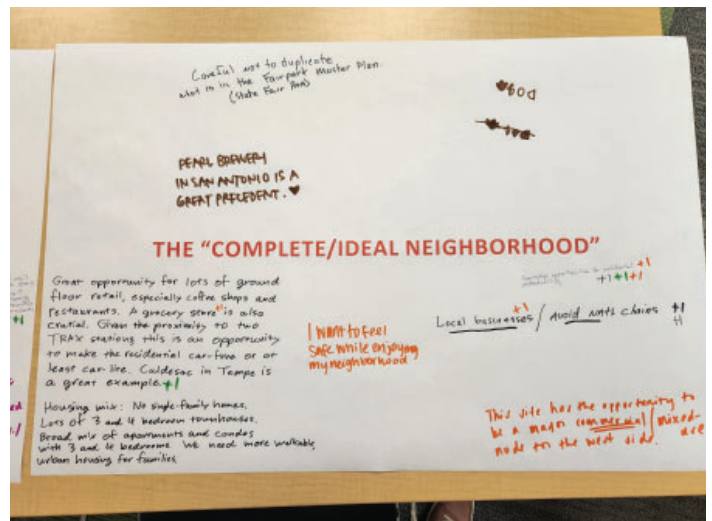 Careful not to duplicate
what is in the Fairpark Master Plan.
(State Fair Park)
♥ DOG
PEARL BREWERY
IN SAN ANTONIO IS A
GREAT PRECEDENT. ♥
THE "COMPLETE/IDEAL NEIGHBORHOOD"
Great opportunity for lots of ground
floor retail, especially coffee shops and
restaurants. A grocery store +1 is also
crucial. Given the proximity to two
TRAX stations this is an opportunity
to make the residential car-free or at
least car-lite. Culdesac in Tempe is
a great example. +1
Housing mix: No single-family homes.
Lots of 3 and 4 bedroom townhouses.
Broad mix of apartments and condos
with 3 and 4 bedrooms. We need more walkable,
urban housing for families.
I want to feel
safe while enjoying
my neighborhood
+1
+1 +1 +1
+1
Local businesses / Avoid chains +1
This site has the opportunity to
be a major commercial / mixed-use
node for the west side.
+1